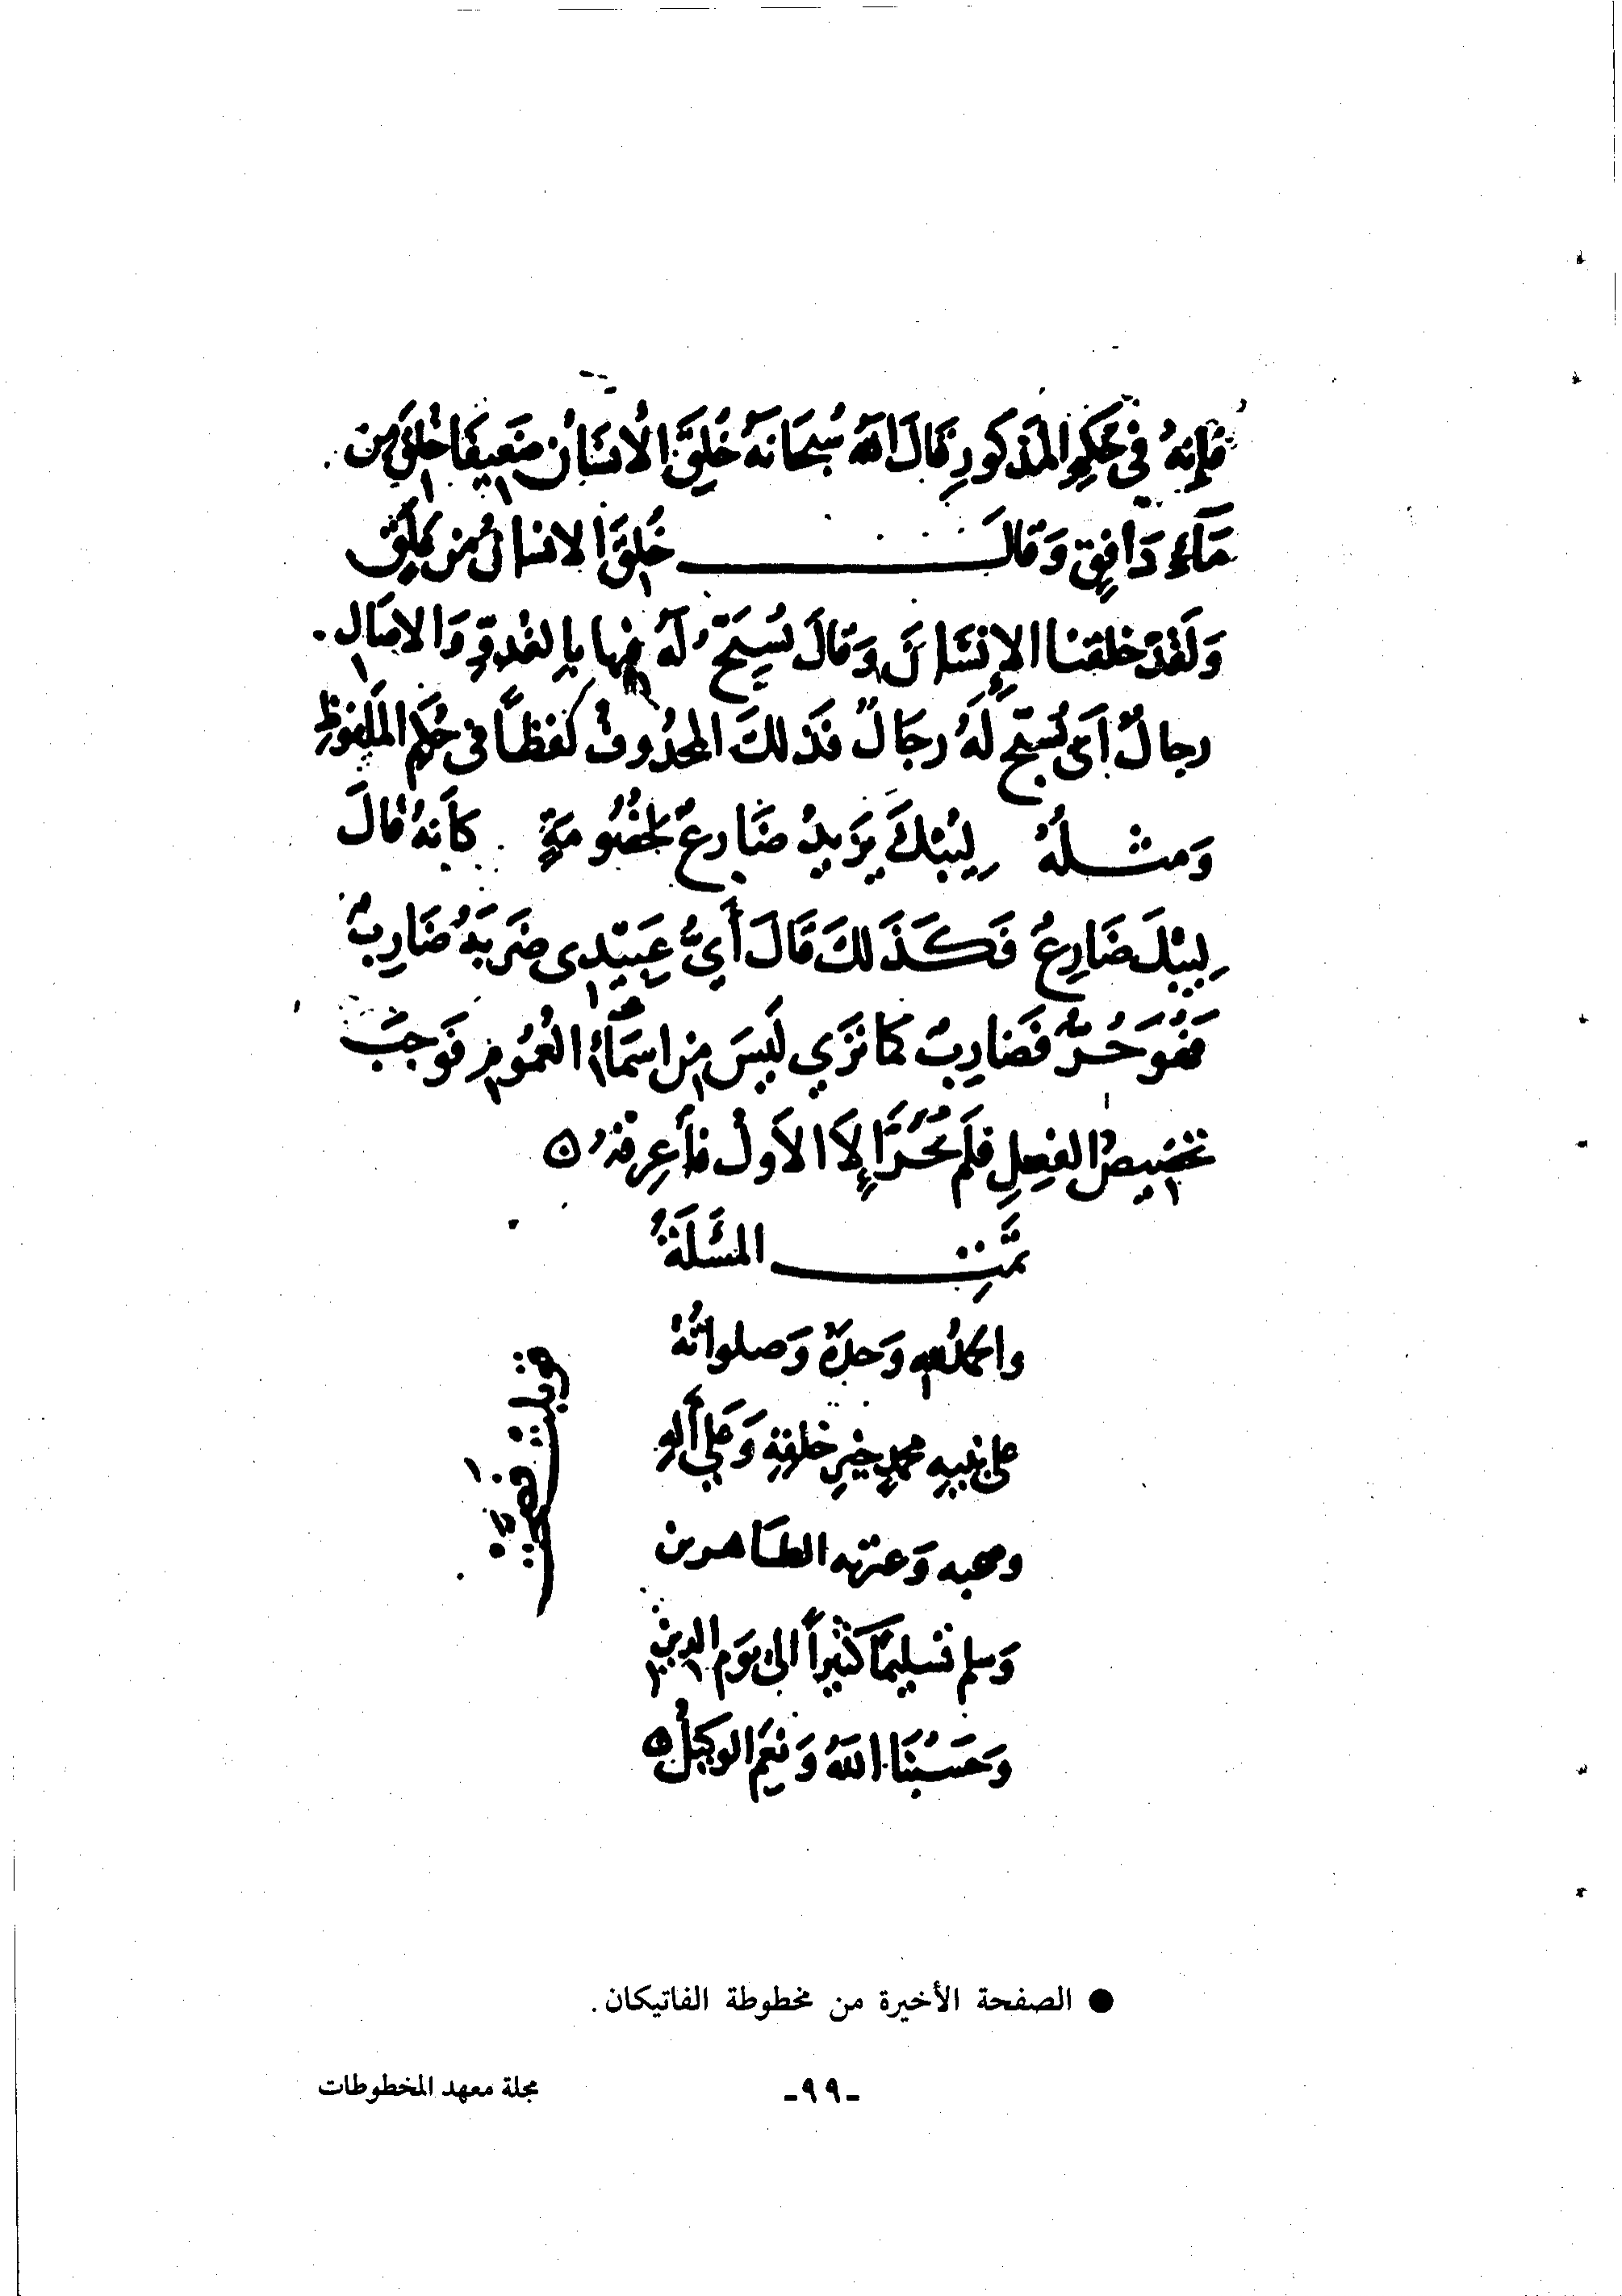 فَإِنهُ فى حُكمِ المَذكورِ قَالَ اللهُ سُبحَانَهُ خُلِقَ الاِنسَانُ ضَعِيفًا خُلِقَ مِن
مَآءٍ دَافِقٍ وَقالَ خُلِقَ الانسانُ من عَجَلٍ
وَلَقَدْ خلقنا الإِنسَانَ وَقالَ يُسَبَّحُ لَهُ فيها بِالغُدوِّ وَالآصَالِ
رجالٌ أىْ يُسَبّحُ لَهُ رجَالٌ فَذلكَ المحذُوفُ لَفظًا فى حُكمِ المَلفُوظِ
وَمثلهُ لِيُبْكَ يَزيدُ ضَارِعٌ لِخُصُومَةٍ كأَنهُ قالَ
لِيَبْكِ ضَارِعٌ فَكَذَلكَ قَالَ أَيُّ عَبِيْدِى ضَرَبَهُ ضَارِبٌ
فَهُوَ حُرٌّ فَضَارِبٌ كما تَرَي لَيسَ من اسمَاءِ العُمُومِ فَوَجَبَ
تخصِيصُ الفِعلِ فلَم يُحَرَّ إِلاَّ الاَولُ فَأعرِفهُ
تَمَّتِ المَسْئَلَةُ
والحمدُ لله وَحدَهُ وَصلواتُهُ
على نبيه محمدٍ خيرِ خلقِهِ وَعَلى آلهِ
وصحبه وَعترته الطاهرين
وَسلم تسليمًا كثيراً الى يَوم الدين
وَحَسْبُنَا اللهُ وَنِعمَ الوكيلُ
قوبلت فصحّت
● الصفحة الأخيرة من مخطوطة الفاتيكان.
-٩٩-
مجلة معهد المخطوطات